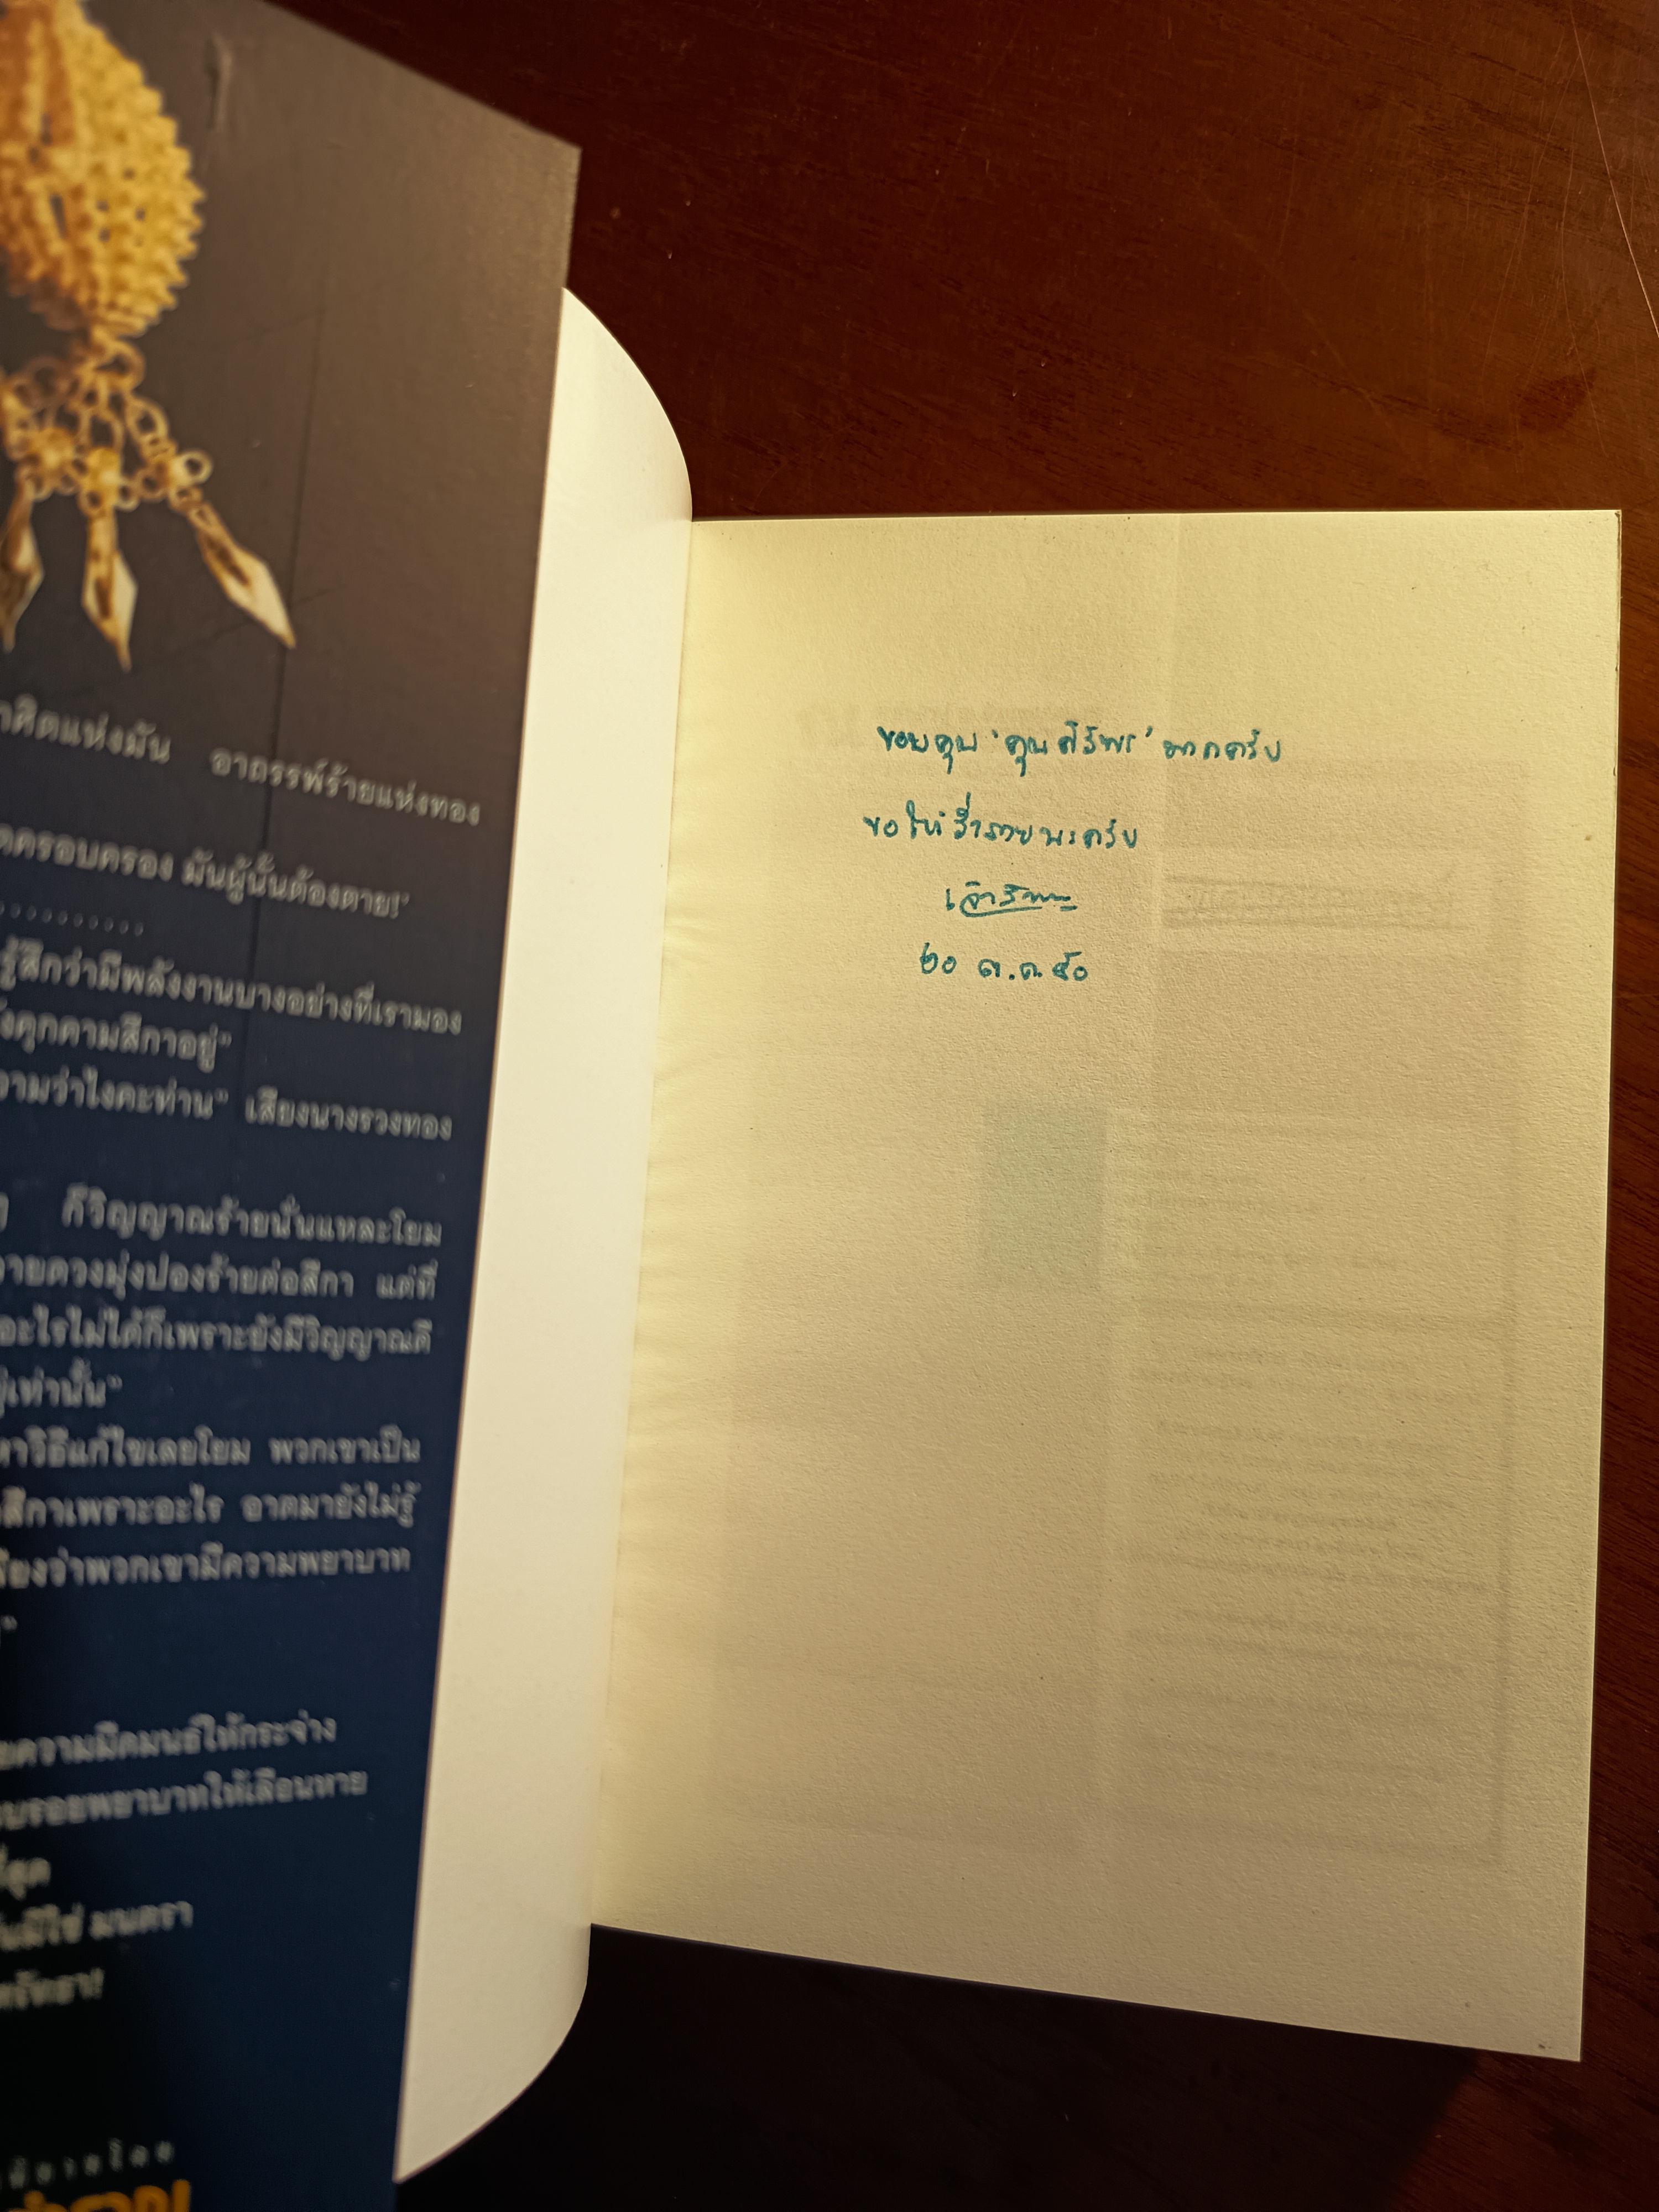 าศิตแห่งมัน อาถรรพ์ร้ายแห่งทอง
ดครอบครอง มันผู้นั้นต้องตาย!'
..........
รู้สึกว่ามีพลังงานบางอย่างที่เรามอง
ังคุกคามสีกาอยู่"
วามว่าไงคะท่าน" เสียงนางรวงทอง
ก็วิญญาณร้ายนั่นแหละโยม
ายดวงมุ่งปองร้ายต่อสีกา แต่ที่
อะไรไม่ได้ก็เพราะยังมีวิญญาณดี
่เท่านั้น"
หาวิธีแก้ไขเลยโยม พวกเขาเป็น
สีกาเพราะอะไร อาตมายังไม่รู้
ียงว่าพวกเขามีความพยาบาท
"
ยความมืดมนธ์ให้กระจ่าง
บรอยพยาบาทให้เลือนหาย
ี่สุด
ันมิใช่ มนตรา
ขอบคุณ 'คุณศิริพร' มากครับ
ขอให้ร่ำรวยนะครับ
๒๐ ต.ค. ๕๐